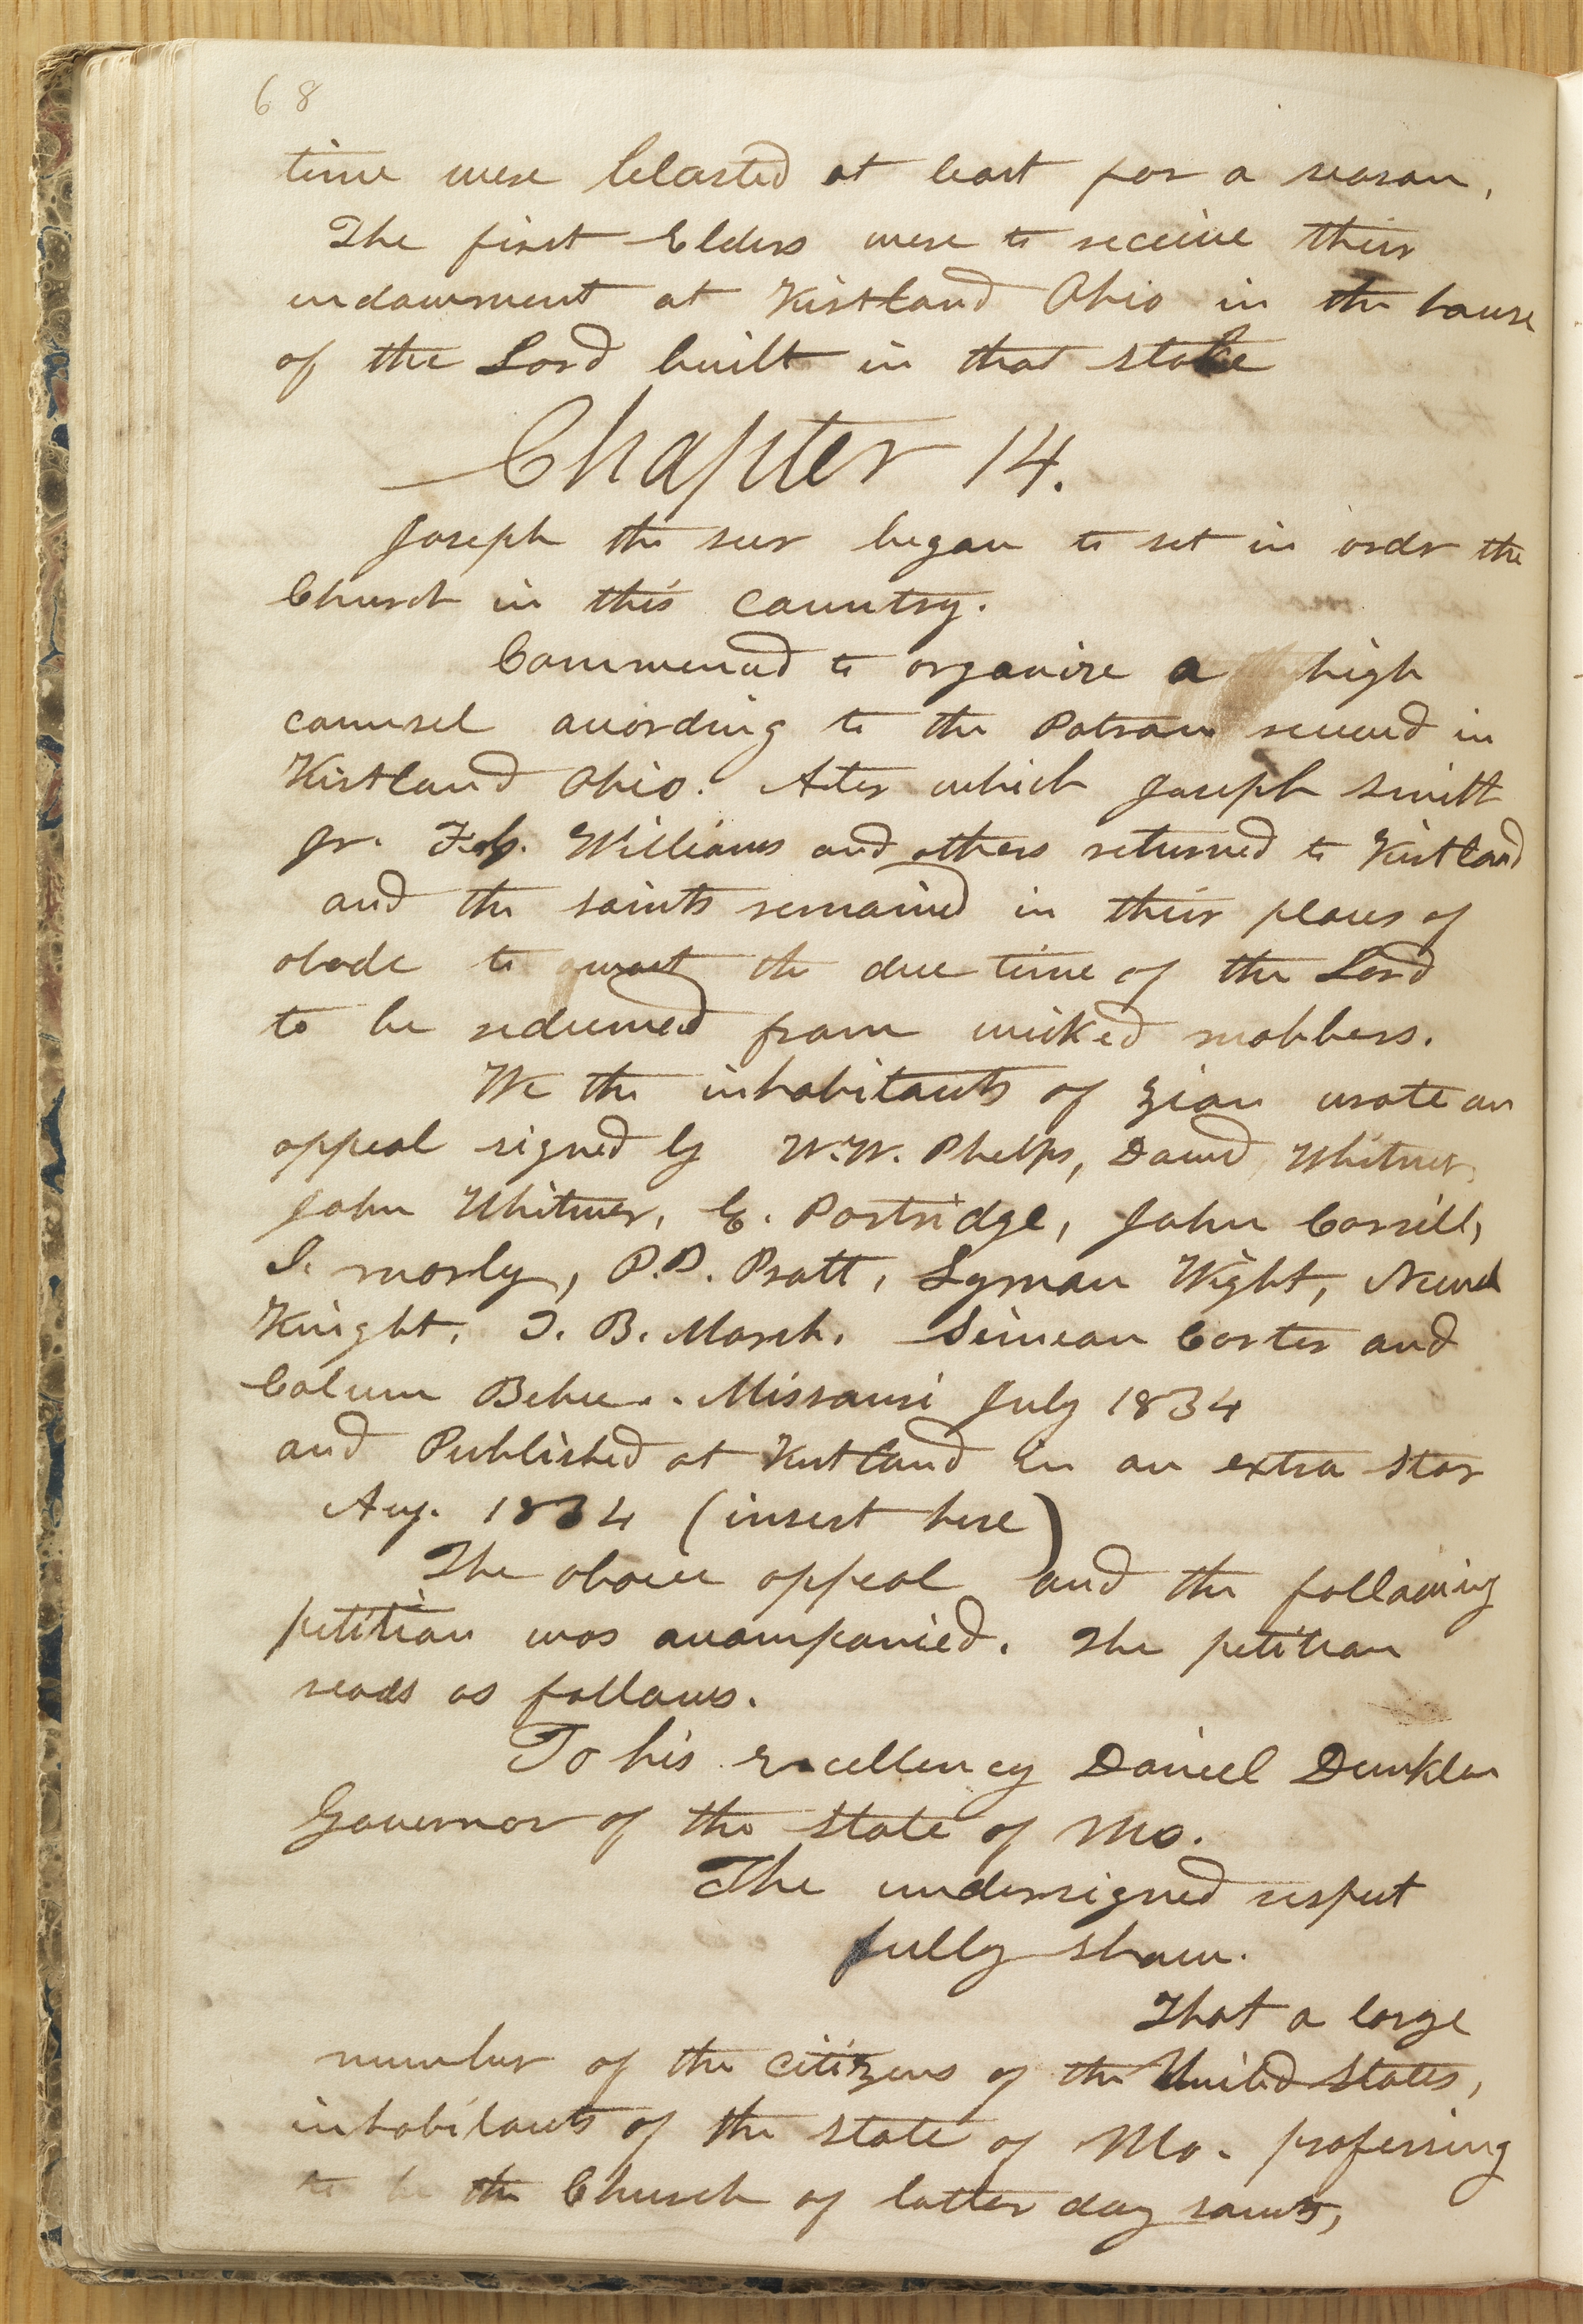 68
time were blasted at least for a season,
The first Elders were to receive their
endowment at Kirtland Ohio in the house
of the Lord built in that stake
Chapter 14.
Joseph the seer began to set in order the
Church in this country.
Commenced to organize a high
counsel according to the Patron received in
Kirtland Ohio. After which Joseph Smith
Jr. F.G. Williams and others returned to Kirtland
and the saints remained in their places of
abode to await the due time of the Lord
to be redeemed from wicked mobbers.
We the inhabitants of Zion wrote an
appeal signed by W.W. Phelps, David Whitmer,
John Whitmer, E. Partridge, John Corrill,
I. morly, P.P. Pratt, Lyman Wight, Newel
Knight, T. B. Marsh. Simeon Carter and
Calvin Bebee. Missouri July 1834
and Published at Kirtland in an extra Star
Aug. 1834 (insert here)
The above appeal and the following
petition was accompanied. The petition
reads as follows.
To his Excellency Daniel Dunklin
Governor of the state of Mo.
The undersigned respect
fully show.
That a large
number of the citizens of the United States,
inhabitants of the state of Mo. professing
to be the Church of latter day saints,